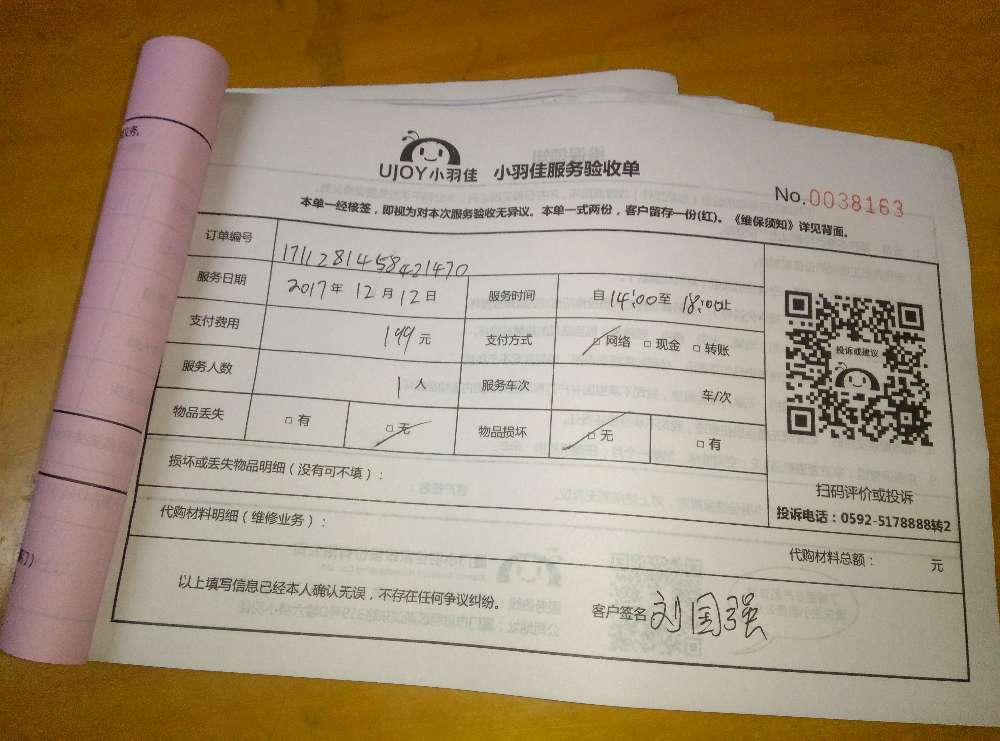 UJOY小羽佳 小羽佳服务验收单
No.0038163
本单一经核签，即视为对本次服务验收无异议。本单一式两份，客户留存一份(红)。《维保须知》详见背面。
订单编号 1711281458421470
服务日期 2017年12月12日 服务时间 自14:00至18:00止
支付费用 199元 支付方式 □网络 □现金 □转账
服务人数 1人 服务车次 车/次
物品丢失 □有 □无 物品损坏 □无 □有
投诉或建议
扫码评价或投诉
投诉电话：0592-5178888转2
损坏或丢失物品明细（没有可不填）：
代购材料明细（维修业务）：
代购材料总额： 元
以上填写信息已经本人确认无误，不存在任何争议纠纷。
客户签名 刘国强